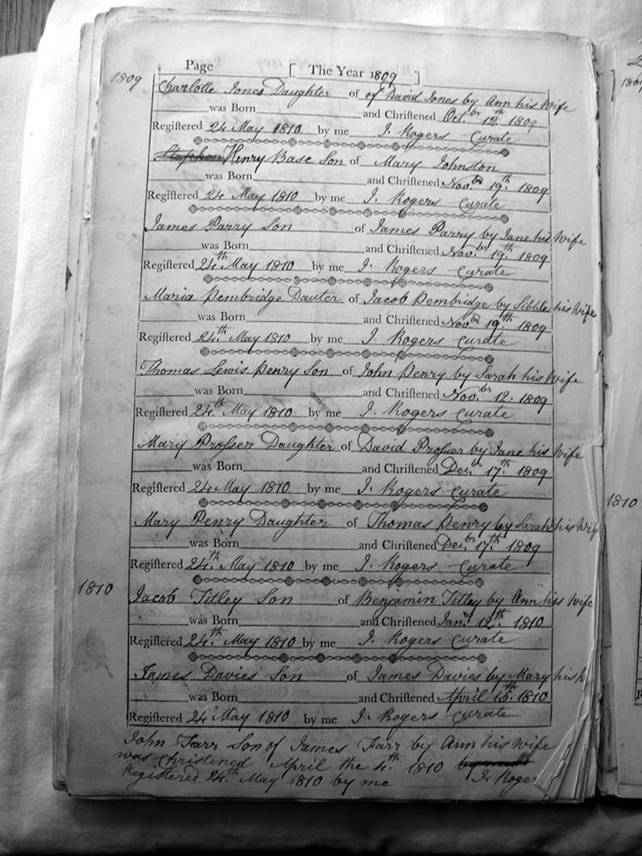 1809
Page [ The Year 1809 ]
Charlotte Jones Daughter of of David Jones by Ann his Wife
was Born and Christened Octbr 12th 1809
Registered 24 May 1810 by me J. Rogers Curate
Stephen Henry Base Son of Mary Johnston
was Born and Christened Novbr 19th 1809
Registered 24 May 1810 by me J. Rogers Curate
James Parry Son of James Parry by Jane his Wife
was Born and Christened Novbr 19th 1809
Registered 24th May 1810 by me J. Rogers Curate
Maria Pembridge Dauter of Jacob Pembridge by his Wife
was Born and Christened Novbr 19th 1809
Registered 24th May 1810 by me J. Rogers Curate
Thomas Lewis Penry Son of John Penry by Sarah his Wife
was Born and Christened Novbr 12 1809
Registered 24th May 1810 by me J. Rogers Curate
Mary Prosser Daughter of David Prosser by Jane his Wife
was Born and Christened Decbr 17th 1809
Registered 24 May 1810 by me J. Rogers Curate
Mary Penry Daughter of Thomas Penry by Sarah his Wife
was Born and Christened Decbr 17th 1809
Registered 24th May 1810 by me J. Rogers Curate
1810
Jacob Titley Son of Benjamin Titley by Ann his Wife
was Born and Christened 1810
Registered 24th May 1810 by me J. Rogers Curate
James Davies Son of James Davies by Mary his
was Born and Christened April 15th 1810
Registered 24 May 1810 by me J. Rogers Curate
John Farr Son of James Farr by Ann his Wife
was Christened April the 4th 1810
Registered 24th May 1810 by me J. Roger
1810